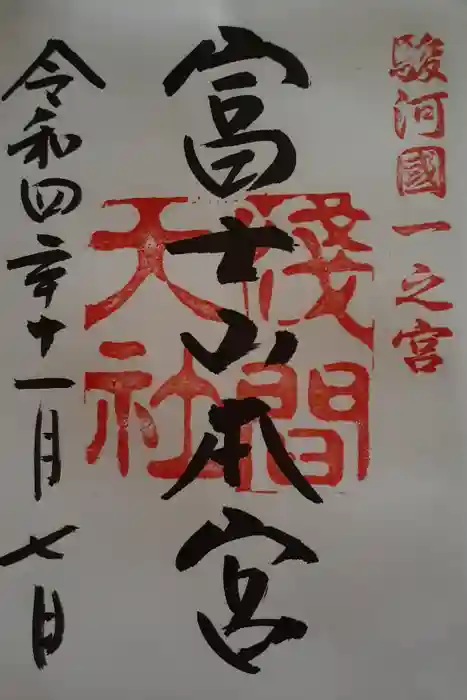 駿河國一之宮
富士山本宮
淺間
天社
令和四年十一月七日